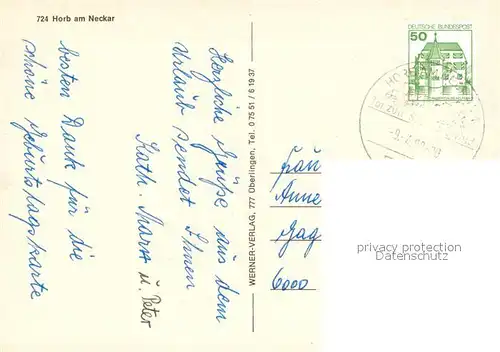 724 Horb am Neckar
Herzliche Grüße aus dem
Urlaub sendet Ihnen
Kath. u. Peter
besten Dank für die
schöne Geburtstagskarte
WERNER-VERLAG, 777 Überlingen, Tel. 0 75 51 / 6 19 37
DEUTSCHE BUNDESPOST
50
Frau
Anne
Gag
6000
privacy protection
Datenschutz